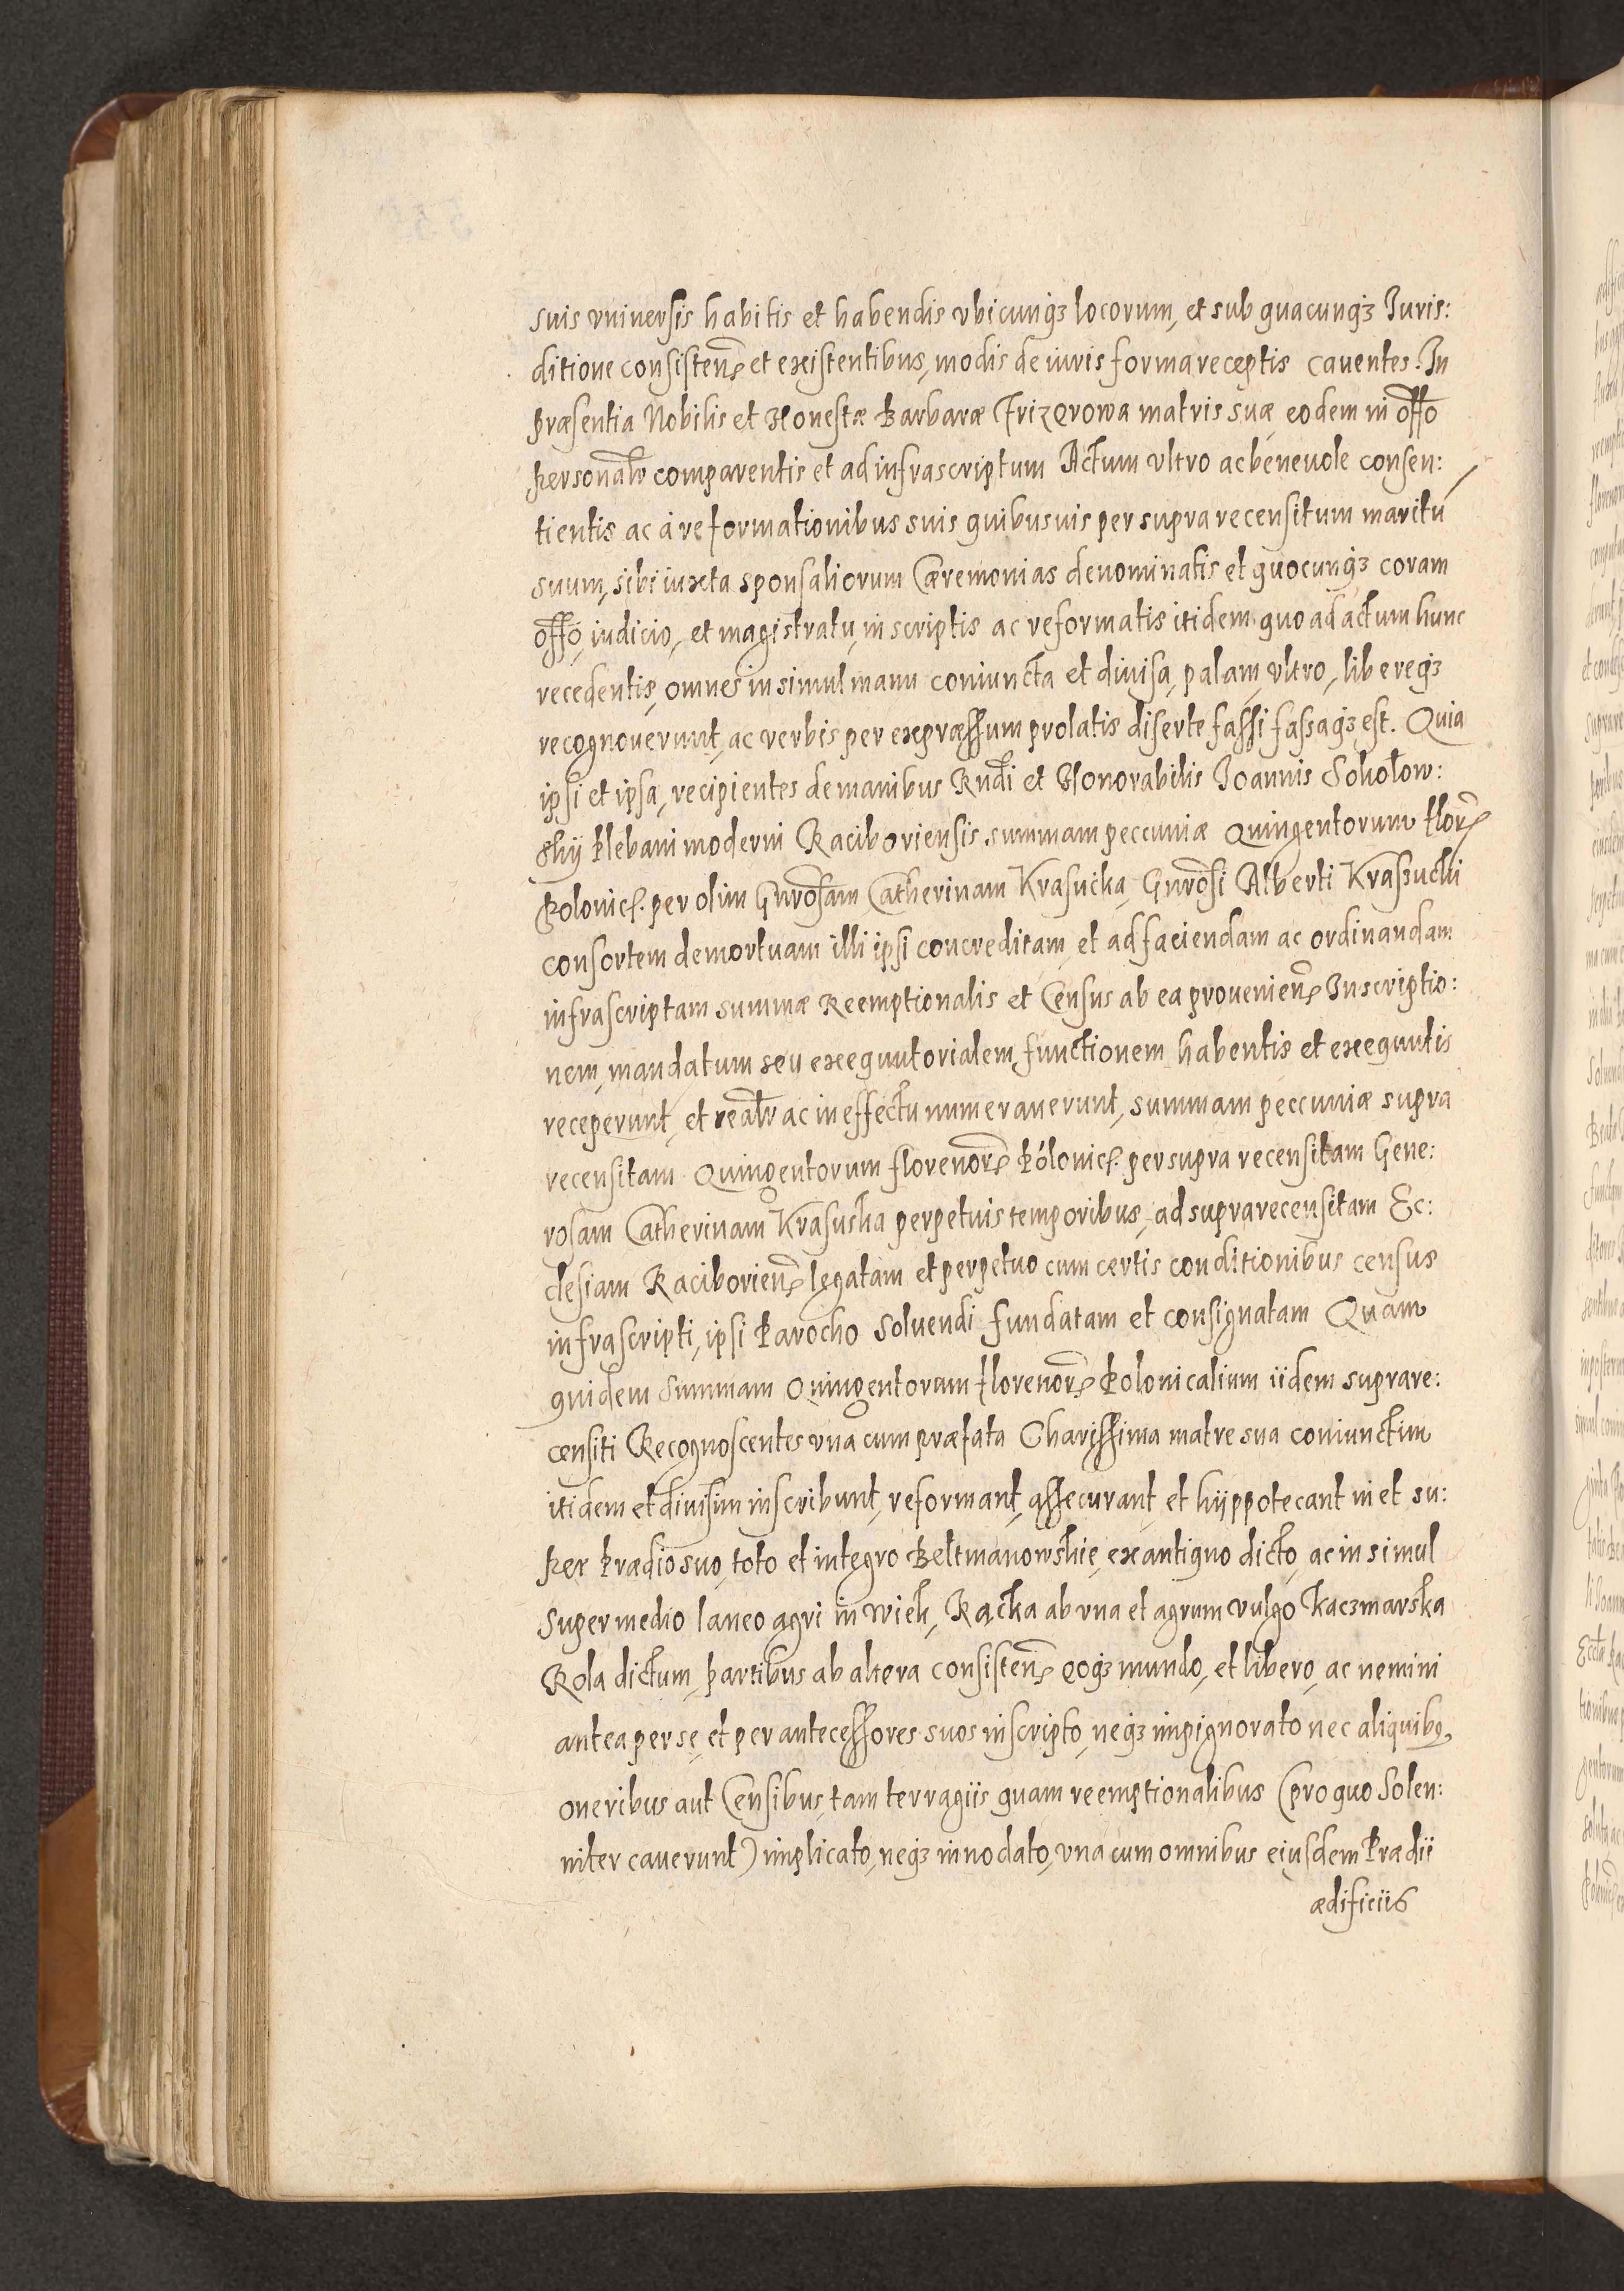 suis vniuersis habitis et habendis vbicunq3 locorum, et sub quacunq3 Juris:
ditione consisteñ et existentibus, modis de iuris forma receptis cauentes. In
præsentia Nobilis et Honestæ Barbaræ Frizerowa matris suæ eodem in offo
personalr comparentis et ad infrascriptum Actum vltro ac beneuole consen:
tientis ac à reformationibus suis quibusuis per supra recensitum maritū
suum, sibi iuxta sponsaliorum Cæremonias denominatis et quocunq3 coram
offo, iudicio, et magistratu, inscriptis ac reformatis itidem quo ad actum hunc
recedentis, omnes insimul manu coniuncta et diuisa, palam, vltro, libereq3
recognouerunt, ac verbis per expræssum prolatis diserte fassi fassaq3 est. Quia
ipsi et ipsa, recipientes de manibus Rndi et Honorabilis Joannis Sokołow:
skij Plebani moderni Raciboriensis summam peccuniæ Quingentorumflor̃
Polonic. per olim Gnrosam Catherinam Krasucka, Gnrosi Alberti Kraszucki
consortem demortuam illi ipsi concreditam, et ad faciendam ac ordinandam
infrascriptam summæ Reemptionalis et Census ab ea prouenieñ Inscriptio:
nem, mandatum seu exequutorialem functionem habentis et exequutis
receperunt, et realr ac in effectu numerauerunt, summam peccuniæ supra
recensitam Quingentorum florenor̃ Polonic. per supra recensitam Gene:
rosam Catherinam Krasuska perpetuis temporibus, ad suprarecensitam Ec:
clesiam Raciborieñ legatam et perpetuo cum certis conditionibus census
infrascripti, ipsi Parocho soluendi fundatam et consignatam Quam
quidem Summam Quingentorum florenor̃ Polonicalium iidem suprare:
censiti Recognoscentes vna cum præfata Charissima matre sua coniunctim
itidem et diuisim inscribunt, reformant, assecurant et hijppotecant in et su:
per Prædio suo, toto et integro Beltmanowskie, ex antiquo dicto, ac insimul
Super medio laneo agri in Wiek, Rącka ab vna et agrum vulgo Kaczmarska
Rola dictum, partibus ab altera consisteñ eoq3 mundo, et libero, ac nemini
antea per se, et per antecessores suos inscripto, neq3 inpignorato nec aliquibq,
oneribus aut Censibus, tam terragiis quam reemptionalibus (pro quo Solen:
niter cauerunt) implicato, neq3 innodato, vna cum omnibus eiusdem Prædii
ædificiis